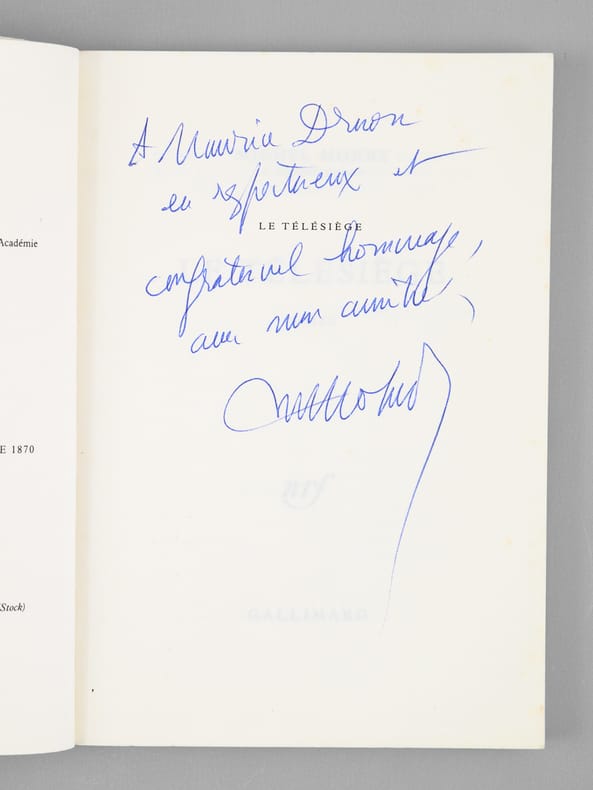 Académie
E 1870
Stock)
A Maurice Druon
en respectueux et
LE TÉLÉSIÈGE
confraternel hommage,
avec mon amitié,
nrf
GALLIMARD